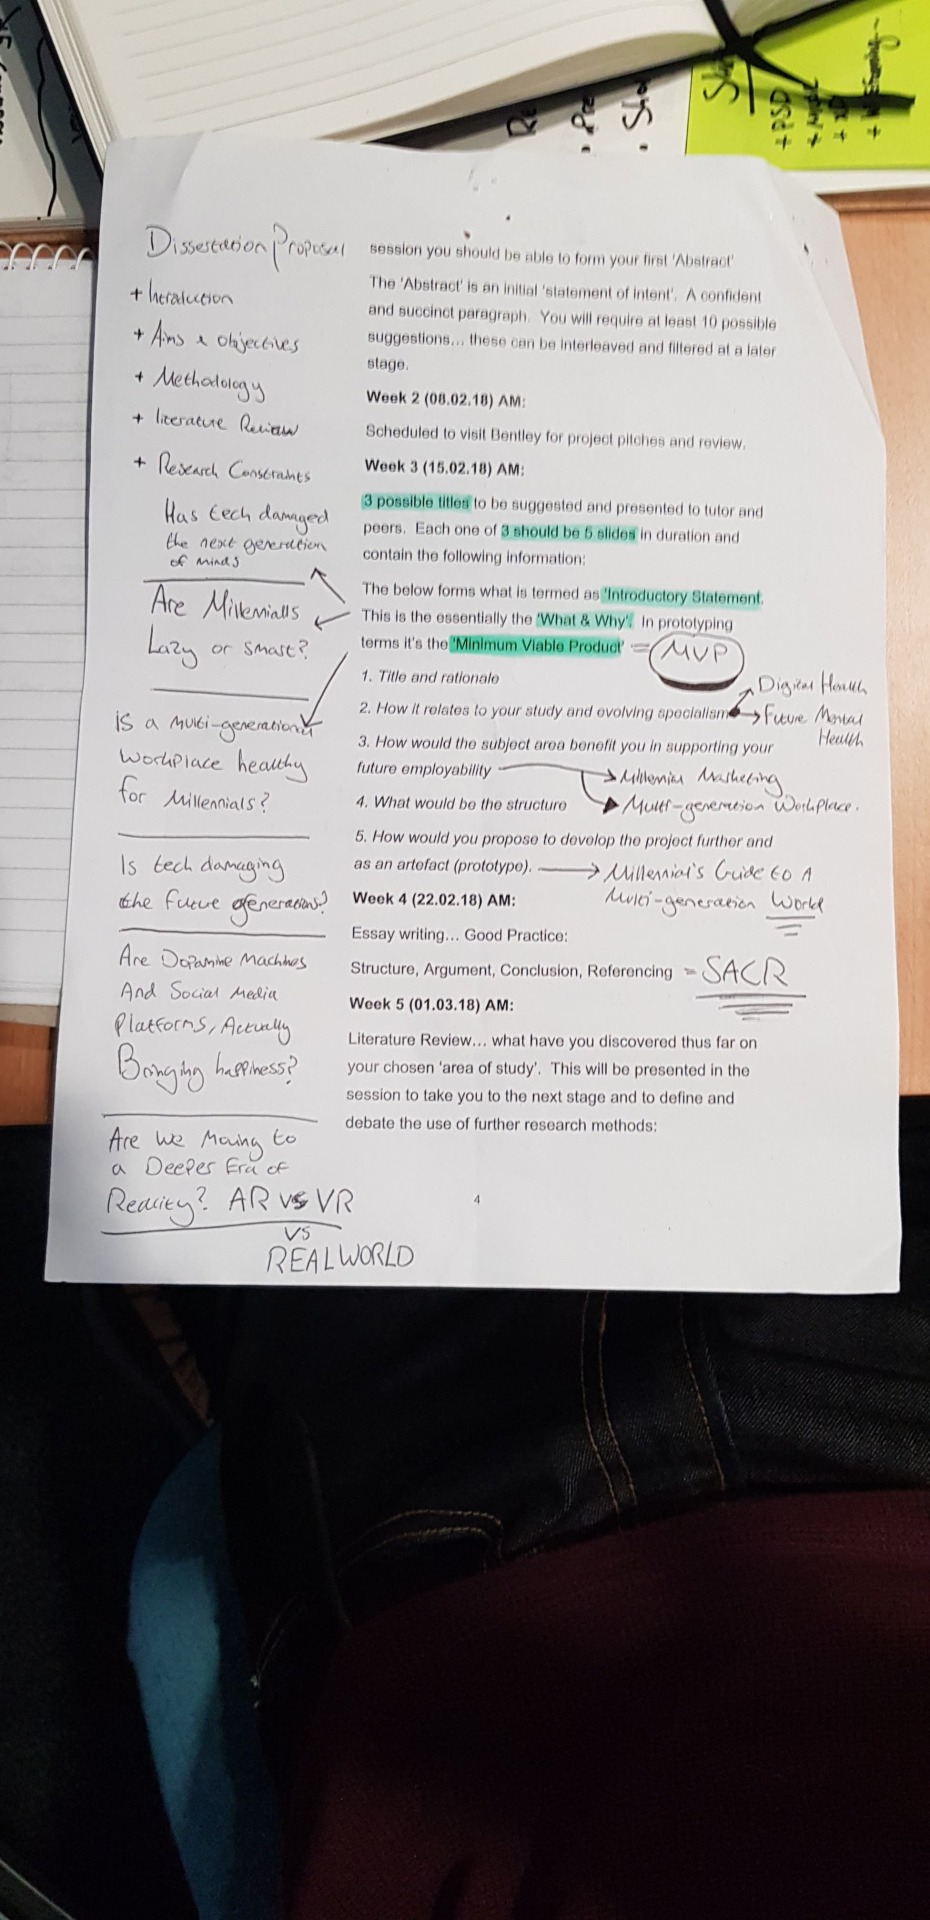 + PSD
Dissertation Proposal
+ Introduction
+ Aims & objectives
+ Methodology
+ literature Review
+ Research Constraints
Has tech damaged
the next generation
of minds
Are Millennialls
Lazy or smart?
is a multi-generational
Workplace healthy
for Millennials?
Is tech damaging
the future generations?
Are Dopamine Machines
And Social Media
Platforms, Actually
Bringing happiness?
Are We Moving to
a Deeper Era of
Reality? AR vs VR
vs
REAL WORLD
session you should be able to form your first 'Abstract'
The 'Abstract' is an initial 'statement of intent'. A confident
and succinct paragraph. You will require at least 10 possible
suggestions... these can be interleaved and filtered at a later
stage.
Week 2 (08.02.18) AM:
Scheduled to visit Bentley for project pitches and review.
Week 3 (15.02.18) AM:
3 possible titles to be suggested and presented to tutor and
peers. Each one of 3 should be 5 slides in duration and
contain the following information:
The below forms what is termed as 'Introductory Statement.
This is the essentially the 'What & Why'. In prototyping
terms it's the 'Minimum Viable Product' = MVP
1. Title and rationale
2. How it relates to your study and evolving specialism
Digital Health
Future Mental
Health
3. How would the subject area benefit you in supporting your
future employability
Millennial Marketing
Multi-generation Workplace.
4. What would be the structure
5. How would you propose to develop the project further and
as an artefact (prototype).
Millennial's Guide to A
Multi-generation World
Week 4 (22.02.18) AM:
Essay writing... Good Practice:
Structure, Argument, Conclusion, Referencing = SACR
Week 5 (01.03.18) AM:
Literature Review... what have you discovered thus far on
your chosen 'area of study'. This will be presented in the
session to take you to the next stage and to define and
debate the use of further research methods:
4